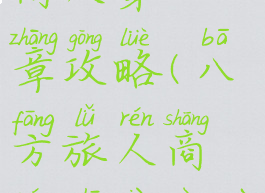 zhāng gōng lüè bā
章攻略(八
fāng lǚ rén shāng
方旅人商